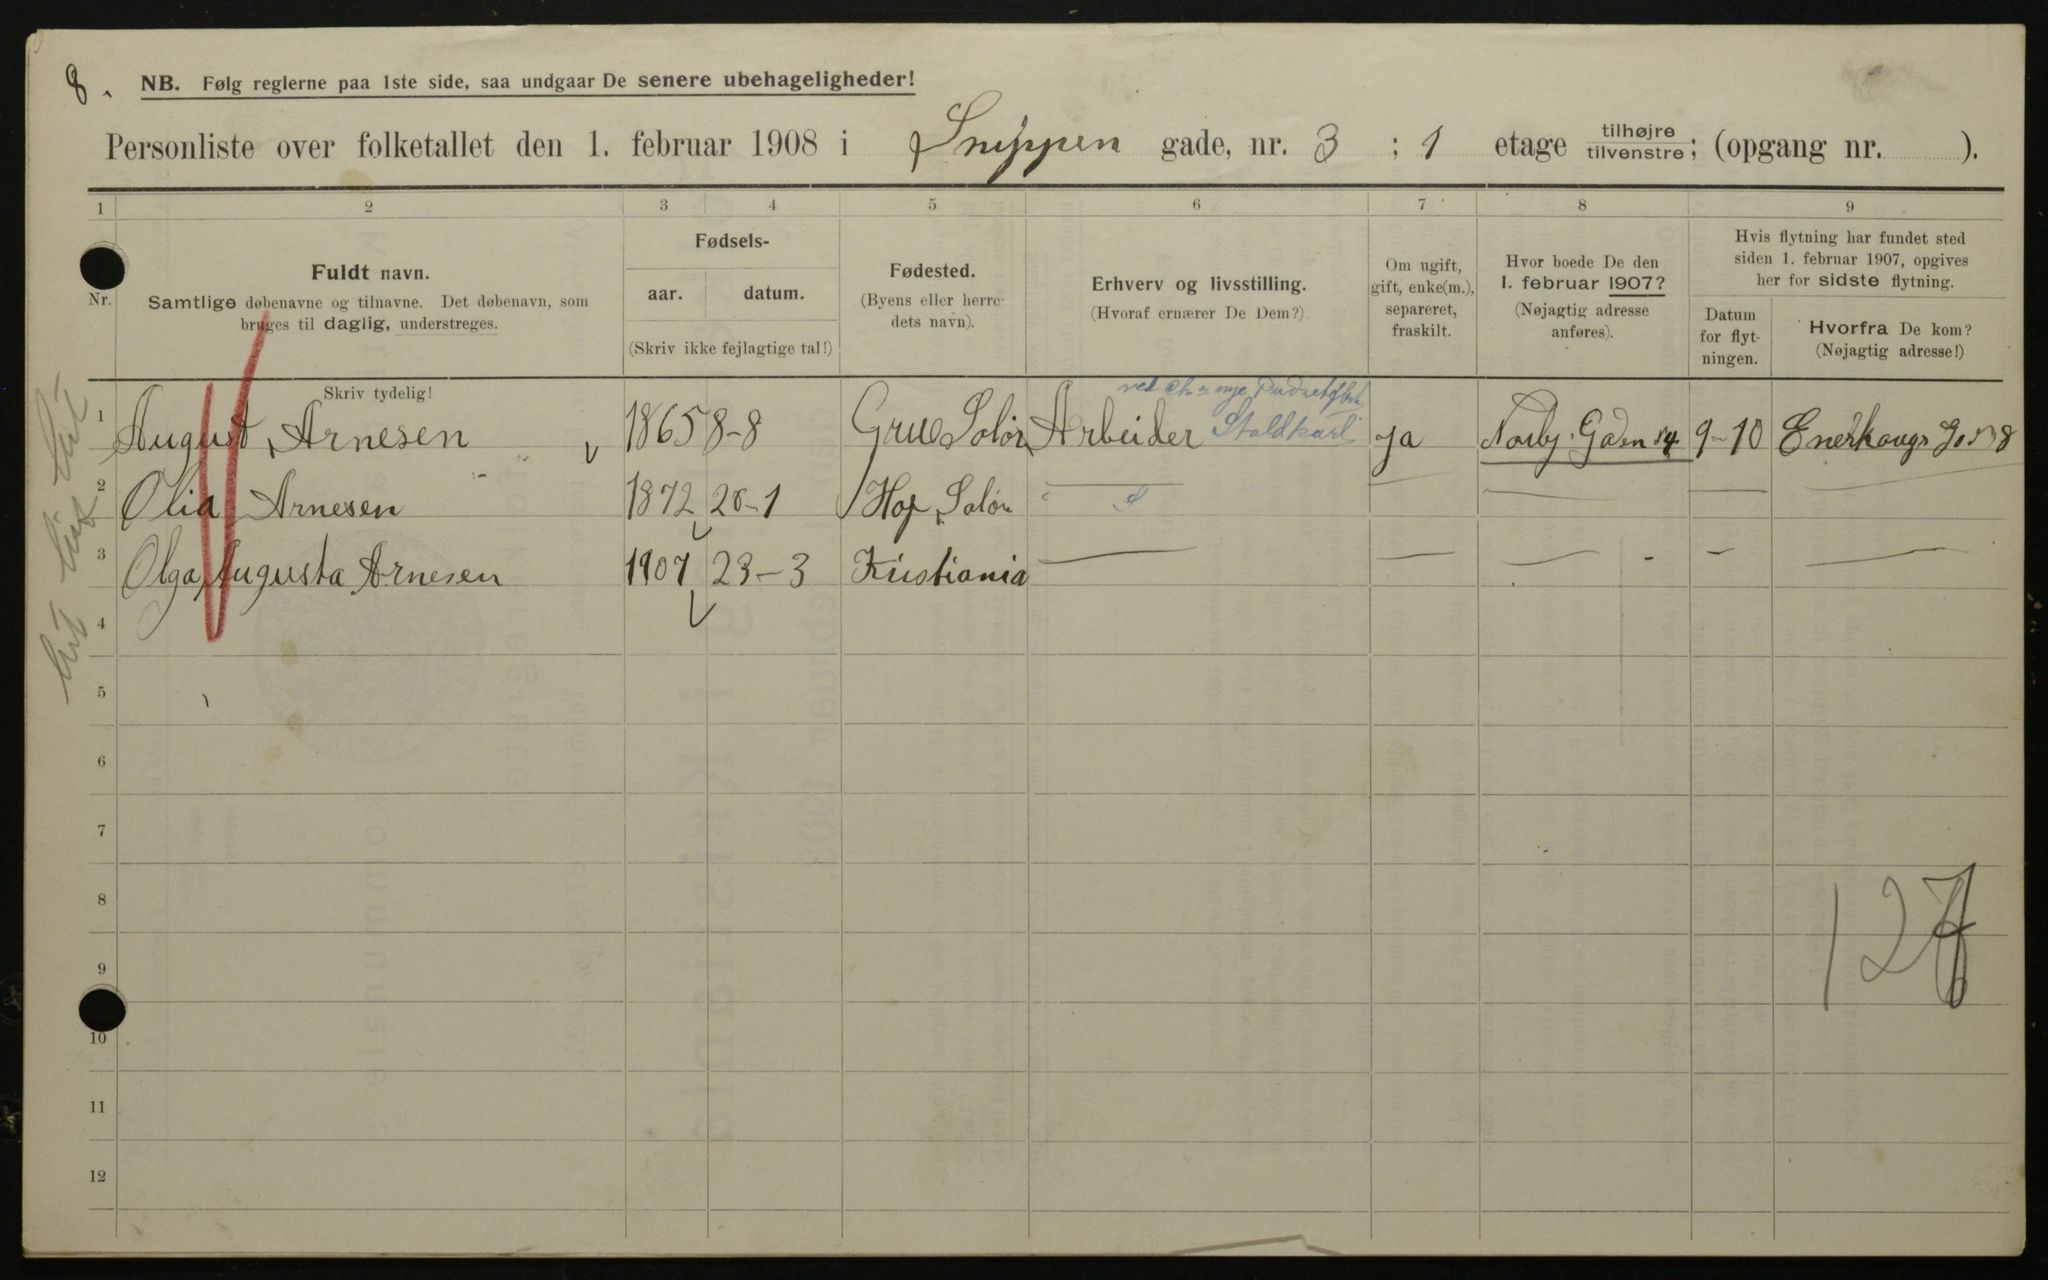 8.
NB. Følg reglerne paa 1ste side, saa undgaar De senere ubehageligheder!
Personliste over folketallet den 1. februar 1908 i Snippen gade, nr. 3 ; 1 etage tilhøjre tilvenstre; (opgang nr. ).
1 2 3 4 5 6 7 8 9
Nr.
Fuldt navn.
Samtlige døbenavne og tilnavne. Det døbenavn, som
bruges til daglig, understreges.
Fødsels-
aar. datum.
(Skriv ikke fejlagtige tal!)
Fødested.
(Byens eller herre-
dets navn).
Erhverv og livsstilling.
(Hvoraf ernærer De Dem?)
Om ugift,
gift, enke(m.),
separeret,
fraskilt.
Hvor boede De den
1. februar 1907?
(Nøjagtig adresse
anføres).
Hvis flytning har fundet sted
siden 1. februar 1907, opgives
her for sidste flytning.
Datum
for flyt-
ningen.
Hvorfra De kom?
(Nøjagtig adresse!)
Skriv tydelig!
1 August Arnesen 1865 8-8 Grue Solør Arbeider Staldkarl ja Norby Gaden 54 9-10
2 Olia Arnesen 1872 20-1 Hof Solør
3 Olga Augusta Arnesen 1907 23-3 Kristiania
4
5
6
7
8
9
10
11
12
127